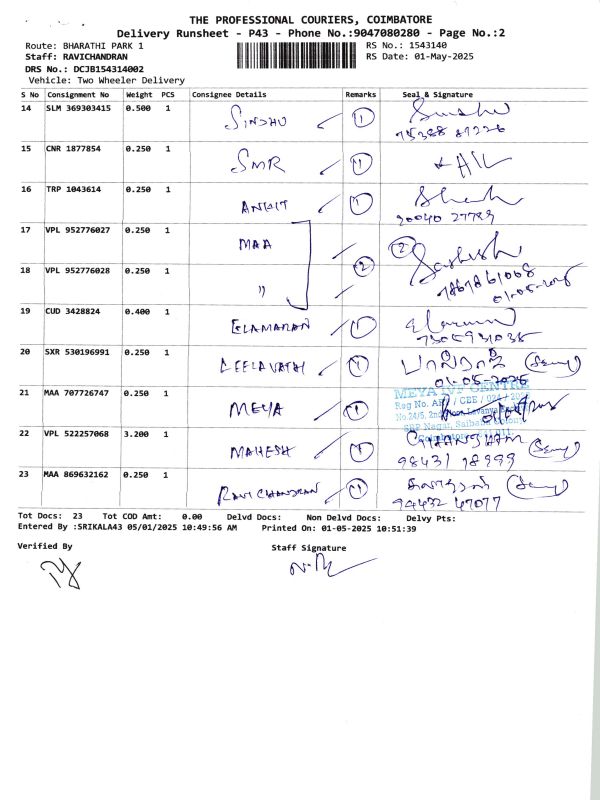 THE PROFESSIONAL COURIERS, COIMBATORE
Delivery Runsheet - P43 - Phone No.:9047080280 - Page No.:2
Route: BHARATHI PARK 1 RS No.: 1543140
Staff: RAVICHANDRAN RS Date: 01-May-2025
DRS No.: DCJB154314002
Vehicle: Two Wheeler Delivery
S No Consignment No Weight PCS Consignee Details Remarks Seal & Signature
14 SLM 369303415 0.500 1 SINDHU 1
15 CNR 1877854 0.250 1 SMR 1
16 TRP 1043614 0.250 1 ANKIT 1
90040 27789
17 VPL 952776027 0.250 1 MAA 2 2
18 VPL 952776028 0.250 1 " Sathish
7867861068
01-05-2025
19 CUD 3428824 0.400 1 ELAMARAN 1
7305931035
20 SXR 530196991 0.250 1 LEELAVATHI 1
01-05-2025
21 MAA 707726747 0.250 1 MEYA 1 MEYA IVF CENTRE
22 VPL 522257068 3.200 1 MAHESH 1
98431 98999
23 MAA 869632162 0.250 1 RAVICHANDRAN 1
94432 47077
Tot Docs: 23 Tot COD Amt: 0.00 Delvd Docs: Non Delvd Docs: Delvy Pts:
Entered By :SRIKALA43 05/01/2025 10:49:56 AM Printed On: 01-05-2025 10:51:39
Verified By Staff Signature